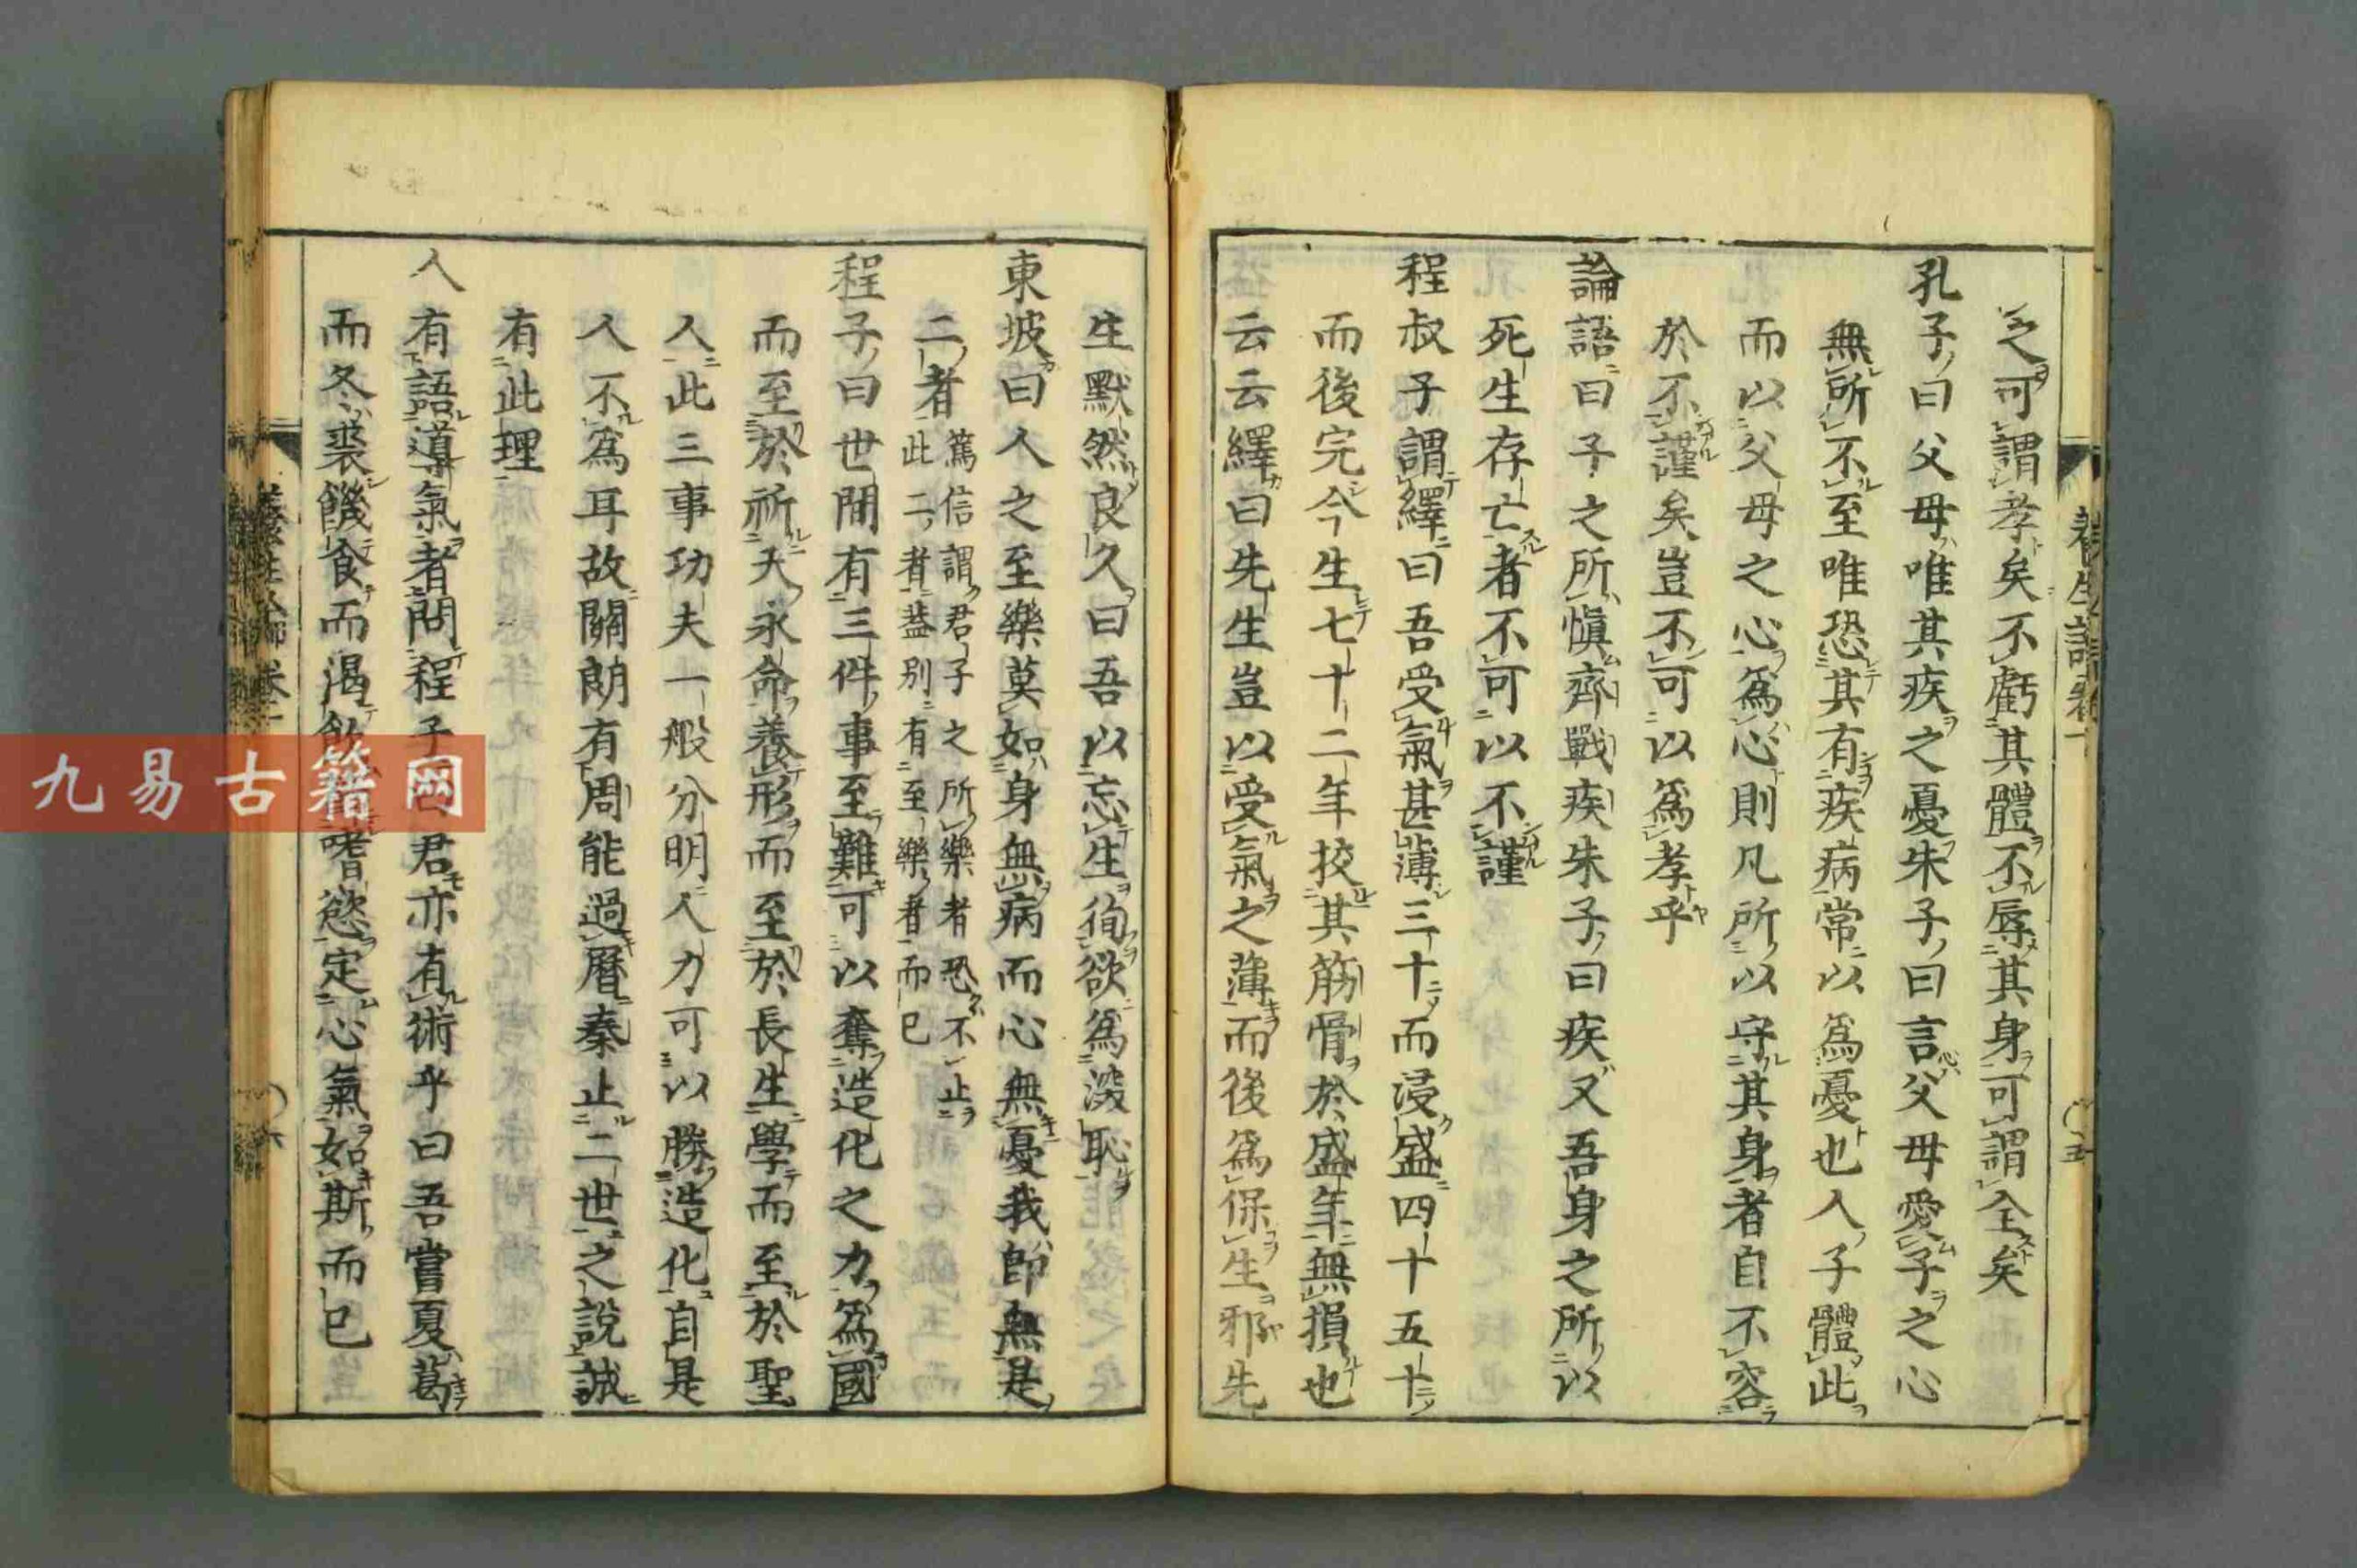 之可謂孝矣不虧其體不辱其身可謂全矣
孔子曰父母唯其疾之憂朱子曰言父母愛子之心
無所不至唯恐其有疾病常以爲憂也人子體此
而以父母之心爲心則凡所以守其身者自不容
於不謹矣豈不可以爲孝乎
論語曰子之所愼齊戰疾朱子曰疾又吾身之所以
死生存亡者不可以不謹
程叔子謂繹曰吾受氣甚薄三十而浸盛四十五十
而後完今生七十二年挍其筋骨於盛年無損也
云云繹曰先生豈以受氣之薄而後爲保生邪先
生默然良久曰吾以忘生徇欲爲深恥
東坡曰人之至樂莫如身無病而心無憂我卽無是
二者
篤信謂君子之所樂者恐不止
此二者蓋別有至樂者而已
程子曰世間有三件事至難可以奪造化之力爲國
而至於祈天永命養形而至於長生學而至於聖
人此三事功夫一般分明人力可以勝造化自是
人不爲耳故關朗有周能過曆秦止二世之說誠
有此理
人有語導氣者問程子君亦有術乎曰吾嘗夏葛
而冬裘饑食而渴飮嗜慾定心氣如斯而已
九易古籍网